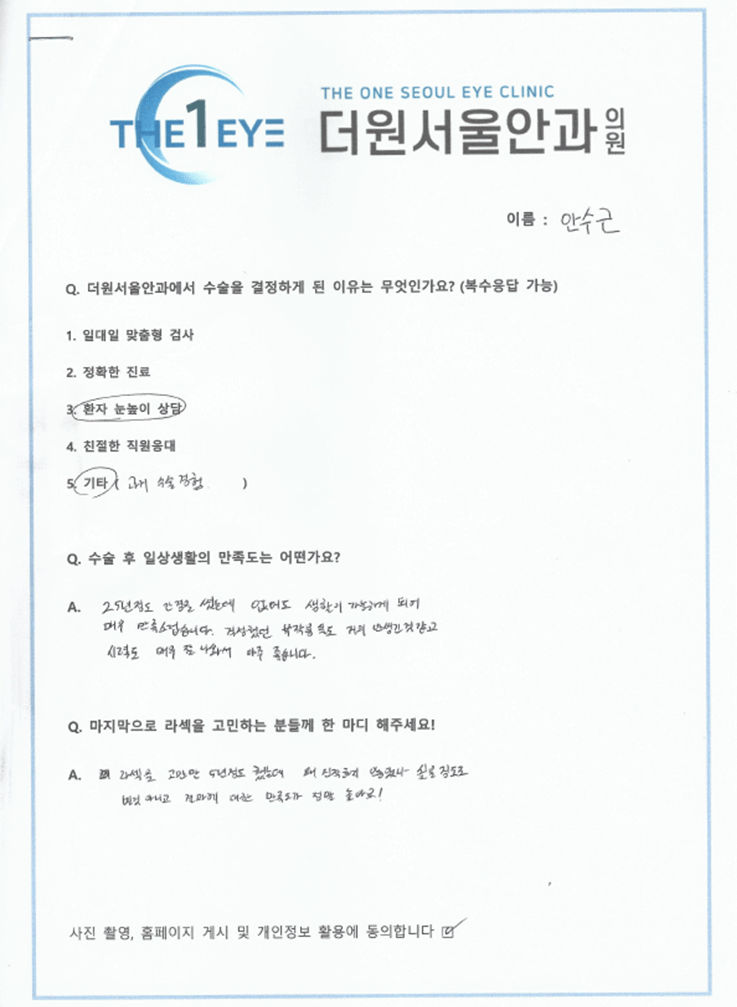 THE1EYE
THE ONE SEOUL EYE CLINIC
더원서울안과의원
이름 : 안수근
Q. 더원서울안과에서 수술을 결정하게 된 이유는 무엇인가요? (복수응답 가능)
1. 일대일 맞춤형 검사
2. 정확한 진료
3. 환자 눈높이 상담
4. 친절한 직원응대
5. 기타 ( 수술 경험 )
Q. 수술 후 일상생활의 만족도는 어떤가요?
A. 25년정도 안경을 썼는데 없어도 생활이 가능하게 되어
매우 만족스럽습니다. 걱정했던 부작용 쪽도 거의 안생긴것같고
시력도 매우 잘 나와서 아주 좋습니다.
Q. 마지막으로 라섹을 고민하는 분들께 한 마디 해주세요!
A. 라섹을 고민만 5년정도 했는데 왜 진작하지 않았나 싶을 정도로
별것 아니고 결과에 대한 만족도가 정말 높아요!
사진 촬영, 홈페이지 게시 및 개인정보 활용에 동의합니다 ☑